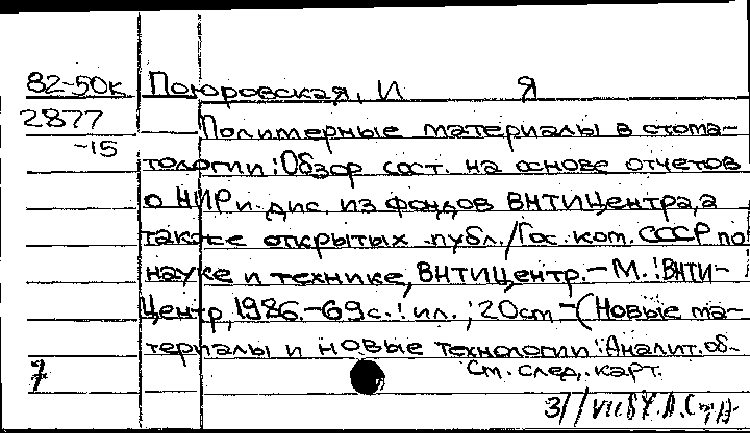 82-50к Поюровская, И Я
2877
-15
Полимерные материалы в стома-
тологии: Обзор сост. на основе отчетов
о НИР и дис. из фондов ВНТИЦентра, а
также открытых публ. / Гос. ком. СССР по
науке и технике, ВНТИЦентр. - М.: ВНТИ-
Центр, 1986. - 69 с.: ил.; 20 cm - (Новые ма-
териалы и новые технологии: Аналит. об-
7 Cm. след. карт.